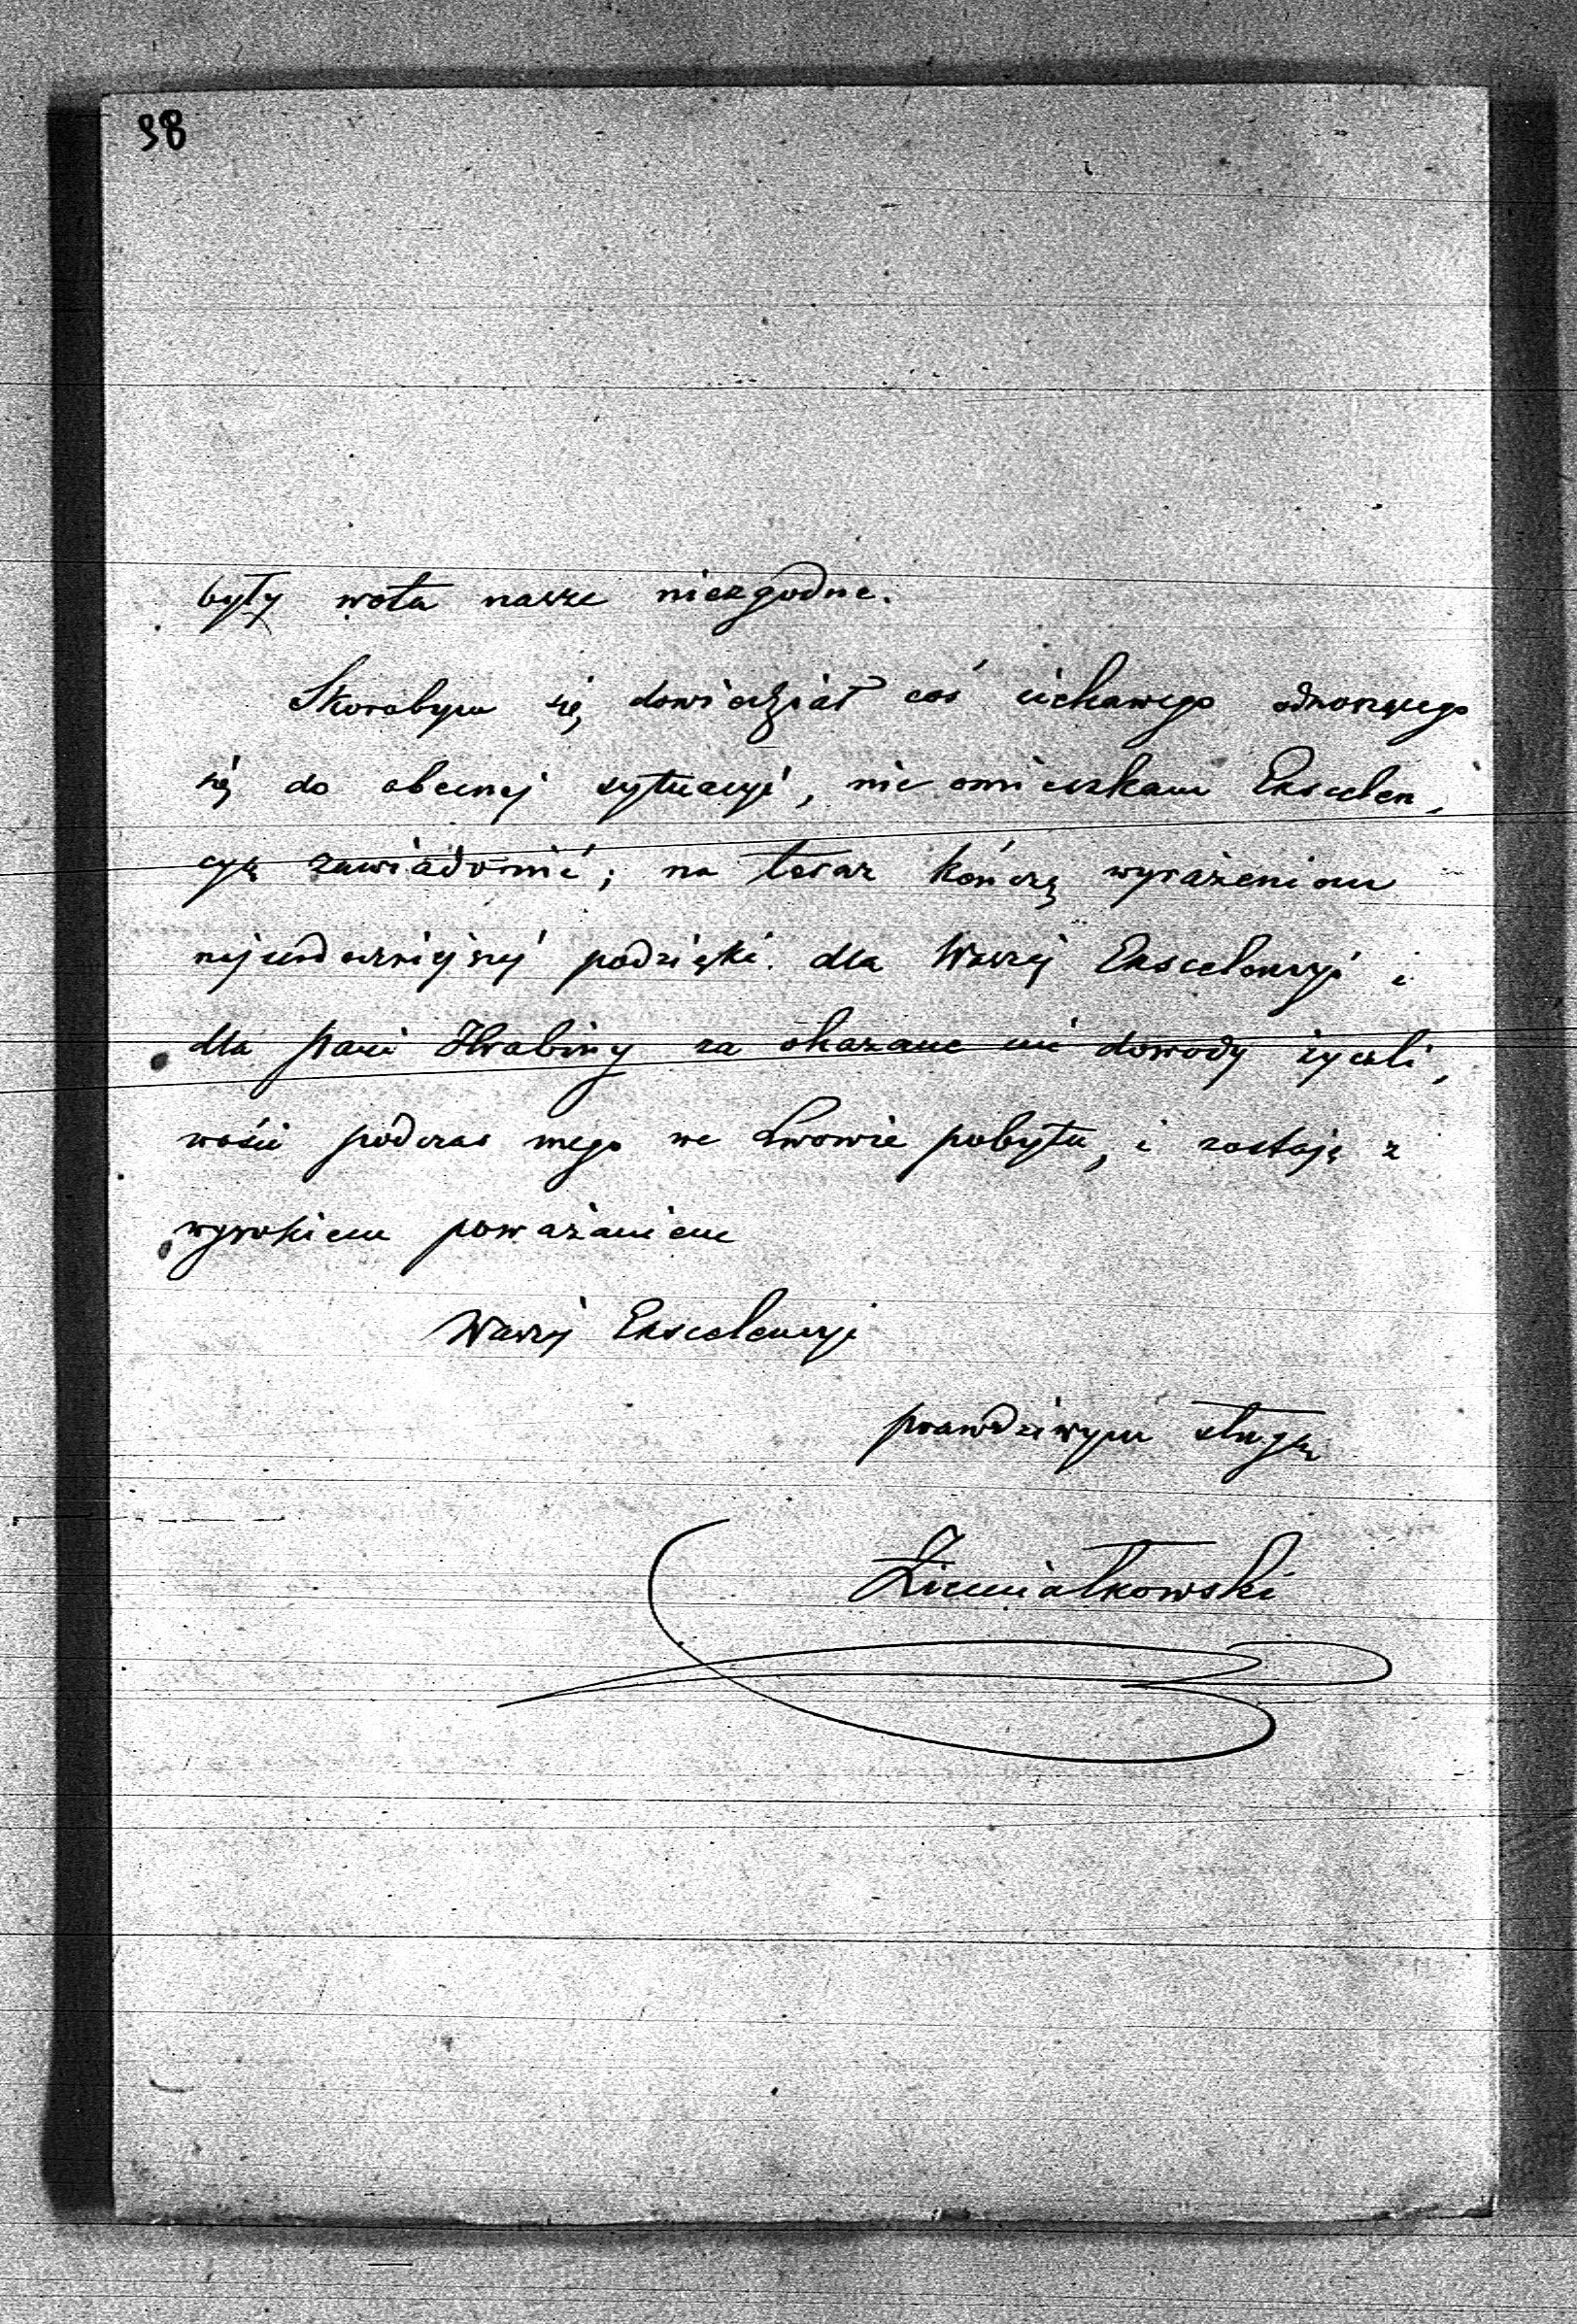 98
były wota nasze niezgodne.
Skorobym się dowiedział coś ciekawego odnoszącego
się do obecnej sytuacyi, nie omieszkam Excelen-
cyą zawiadomić; na teraz kończę wyrażeniem
najserdeczniejszej podzięki dla Waszej Excelencyi i
dla pani Hrabiny za okazane mi dowody życzli-
wości podczas mego we Lwowie pobytu, i zostaję z
wysokiem poważaniem
Waszej Excelencyi
prawdziwym sługą
Ziemiałkowski